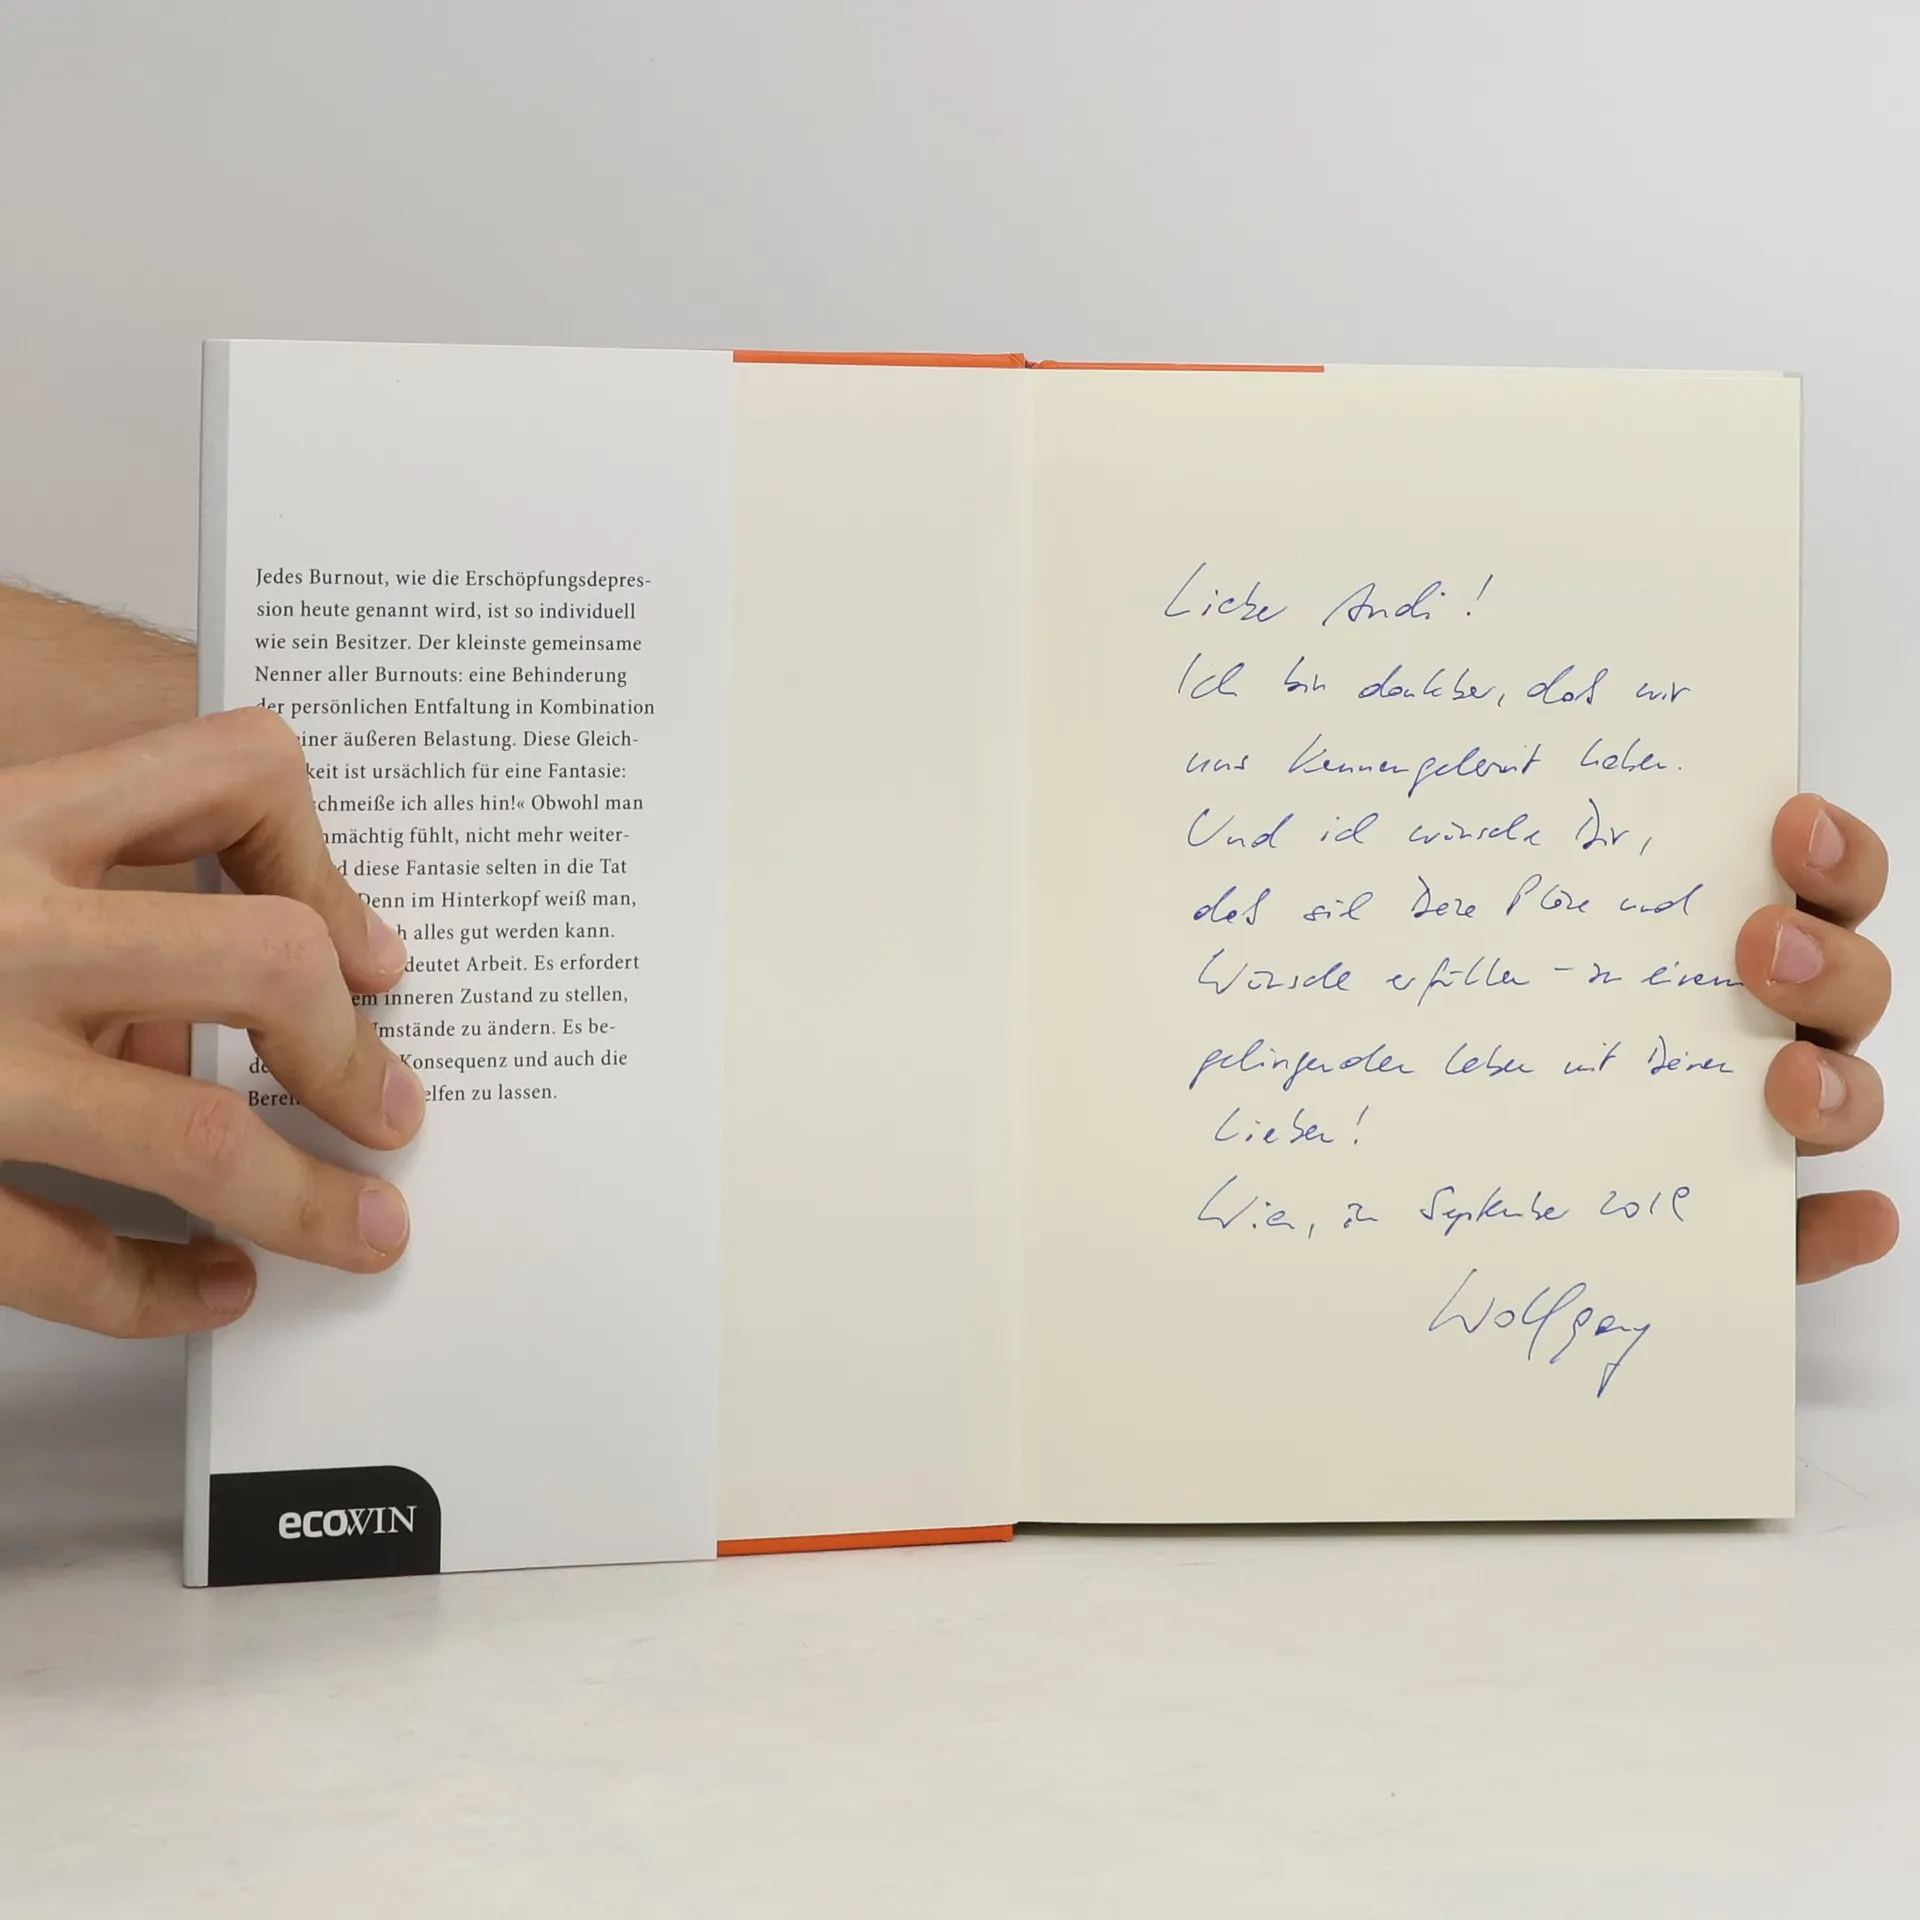 Jedes Burnout, wie die Erschöpfungsdepres-
sion heute genannt wird, ist so individuell
wie sein Besitzer. Der kleinste gemeinsame
Nenner aller Burnouts: eine Behinderung
der persönlichen Entfaltung in Kombination
einer äußeren Belastung. Diese Gleich-
keit ist ursächlich für eine Fantasie:
schmeiße ich alles hin!« Obwohl man
mächtig fühlt, nicht mehr weiter-
d diese Fantasie selten in die Tat
Denn im Hinterkopf weiß man,
h alles gut werden kann.
deutet Arbeit. Es erfordert
em inneren Zustand zu stellen,
Umstände zu ändern. Es be-
Konsequenz und auch die
elfen zu lassen.
ecoWIN
Lieber Andi!
Ich bin dankbar, daß wir
uns kennengelernt haben.
Und ich wünsche Dir,
daß sich Deine Pläne und
Wünsche erfüllen – in einem
gelingenden Leben mit Deinen
Lieben!
Wien, im September 2019
Wolfgang